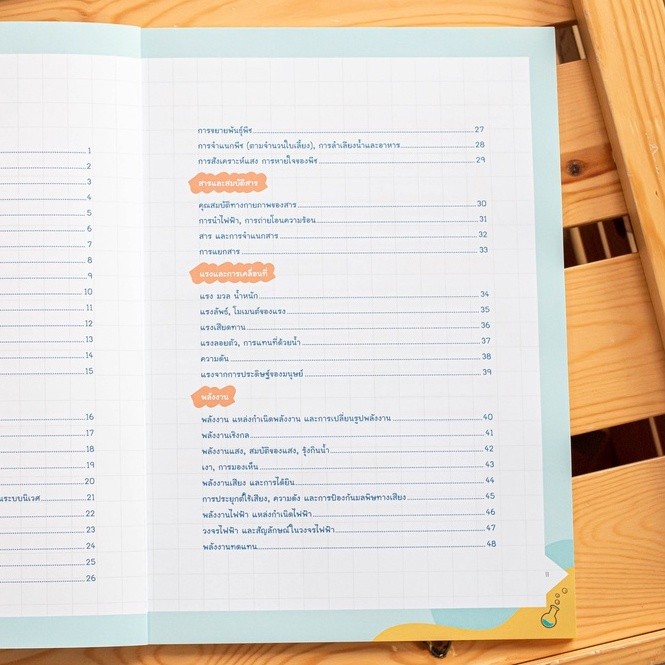 1
2
3
4
5
6
7
8
9
10
11
12
13
14
15
16
17
18
19
20
ระบบนิเวศ 21
22
23
24
25
26
การขยายพันธุ์พืช 27
การจำแนกพืช (ตามจำนวนใบเลี้ยง), การลำเลียงน้ำและอาหาร 28
การสังเคราะห์แสง การหายใจของพืช 29
สารและสมบัติสาร
คุณสมบัติทางกายภาพของสาร 30
การนำไฟฟ้า, การถ่ายโอนความร้อน 31
สาร และการจำแนกสาร 32
การแยกสาร 33
แรงและการเคลื่อนที่
แรง มวล น้ำหนัก 34
แรงลัพธ์, โมเมนต์ของแรง 35
แรงเสียดทาน 36
แรงลอยตัว, การแทนที่ด้วยน้ำ 37
ความดัน 38
แรงจากการประดิษฐ์ของมนุษย์ 39
พลังงาน
พลังงาน แหล่งกำเนิดพลังงาน และการเปลี่ยนรูปพลังงาน 40
พลังงานเชิงกล 41
พลังงานแสง, สมบัติของแสง, รุ้งกินน้ำ 42
เงา, การมองเห็น 43
พลังงานเสียง และการได้ยิน 44
การประยุกต์ใช้เสียง, ความดัง และการป้องกันมลพิษทางเสียง 45
พลังงานไฟฟ้า แหล่งกำเนิดไฟฟ้า 46
วงจรไฟฟ้า และสัญลักษณ์ในวงจรไฟฟ้า 47
พลังงานทดแทน 48